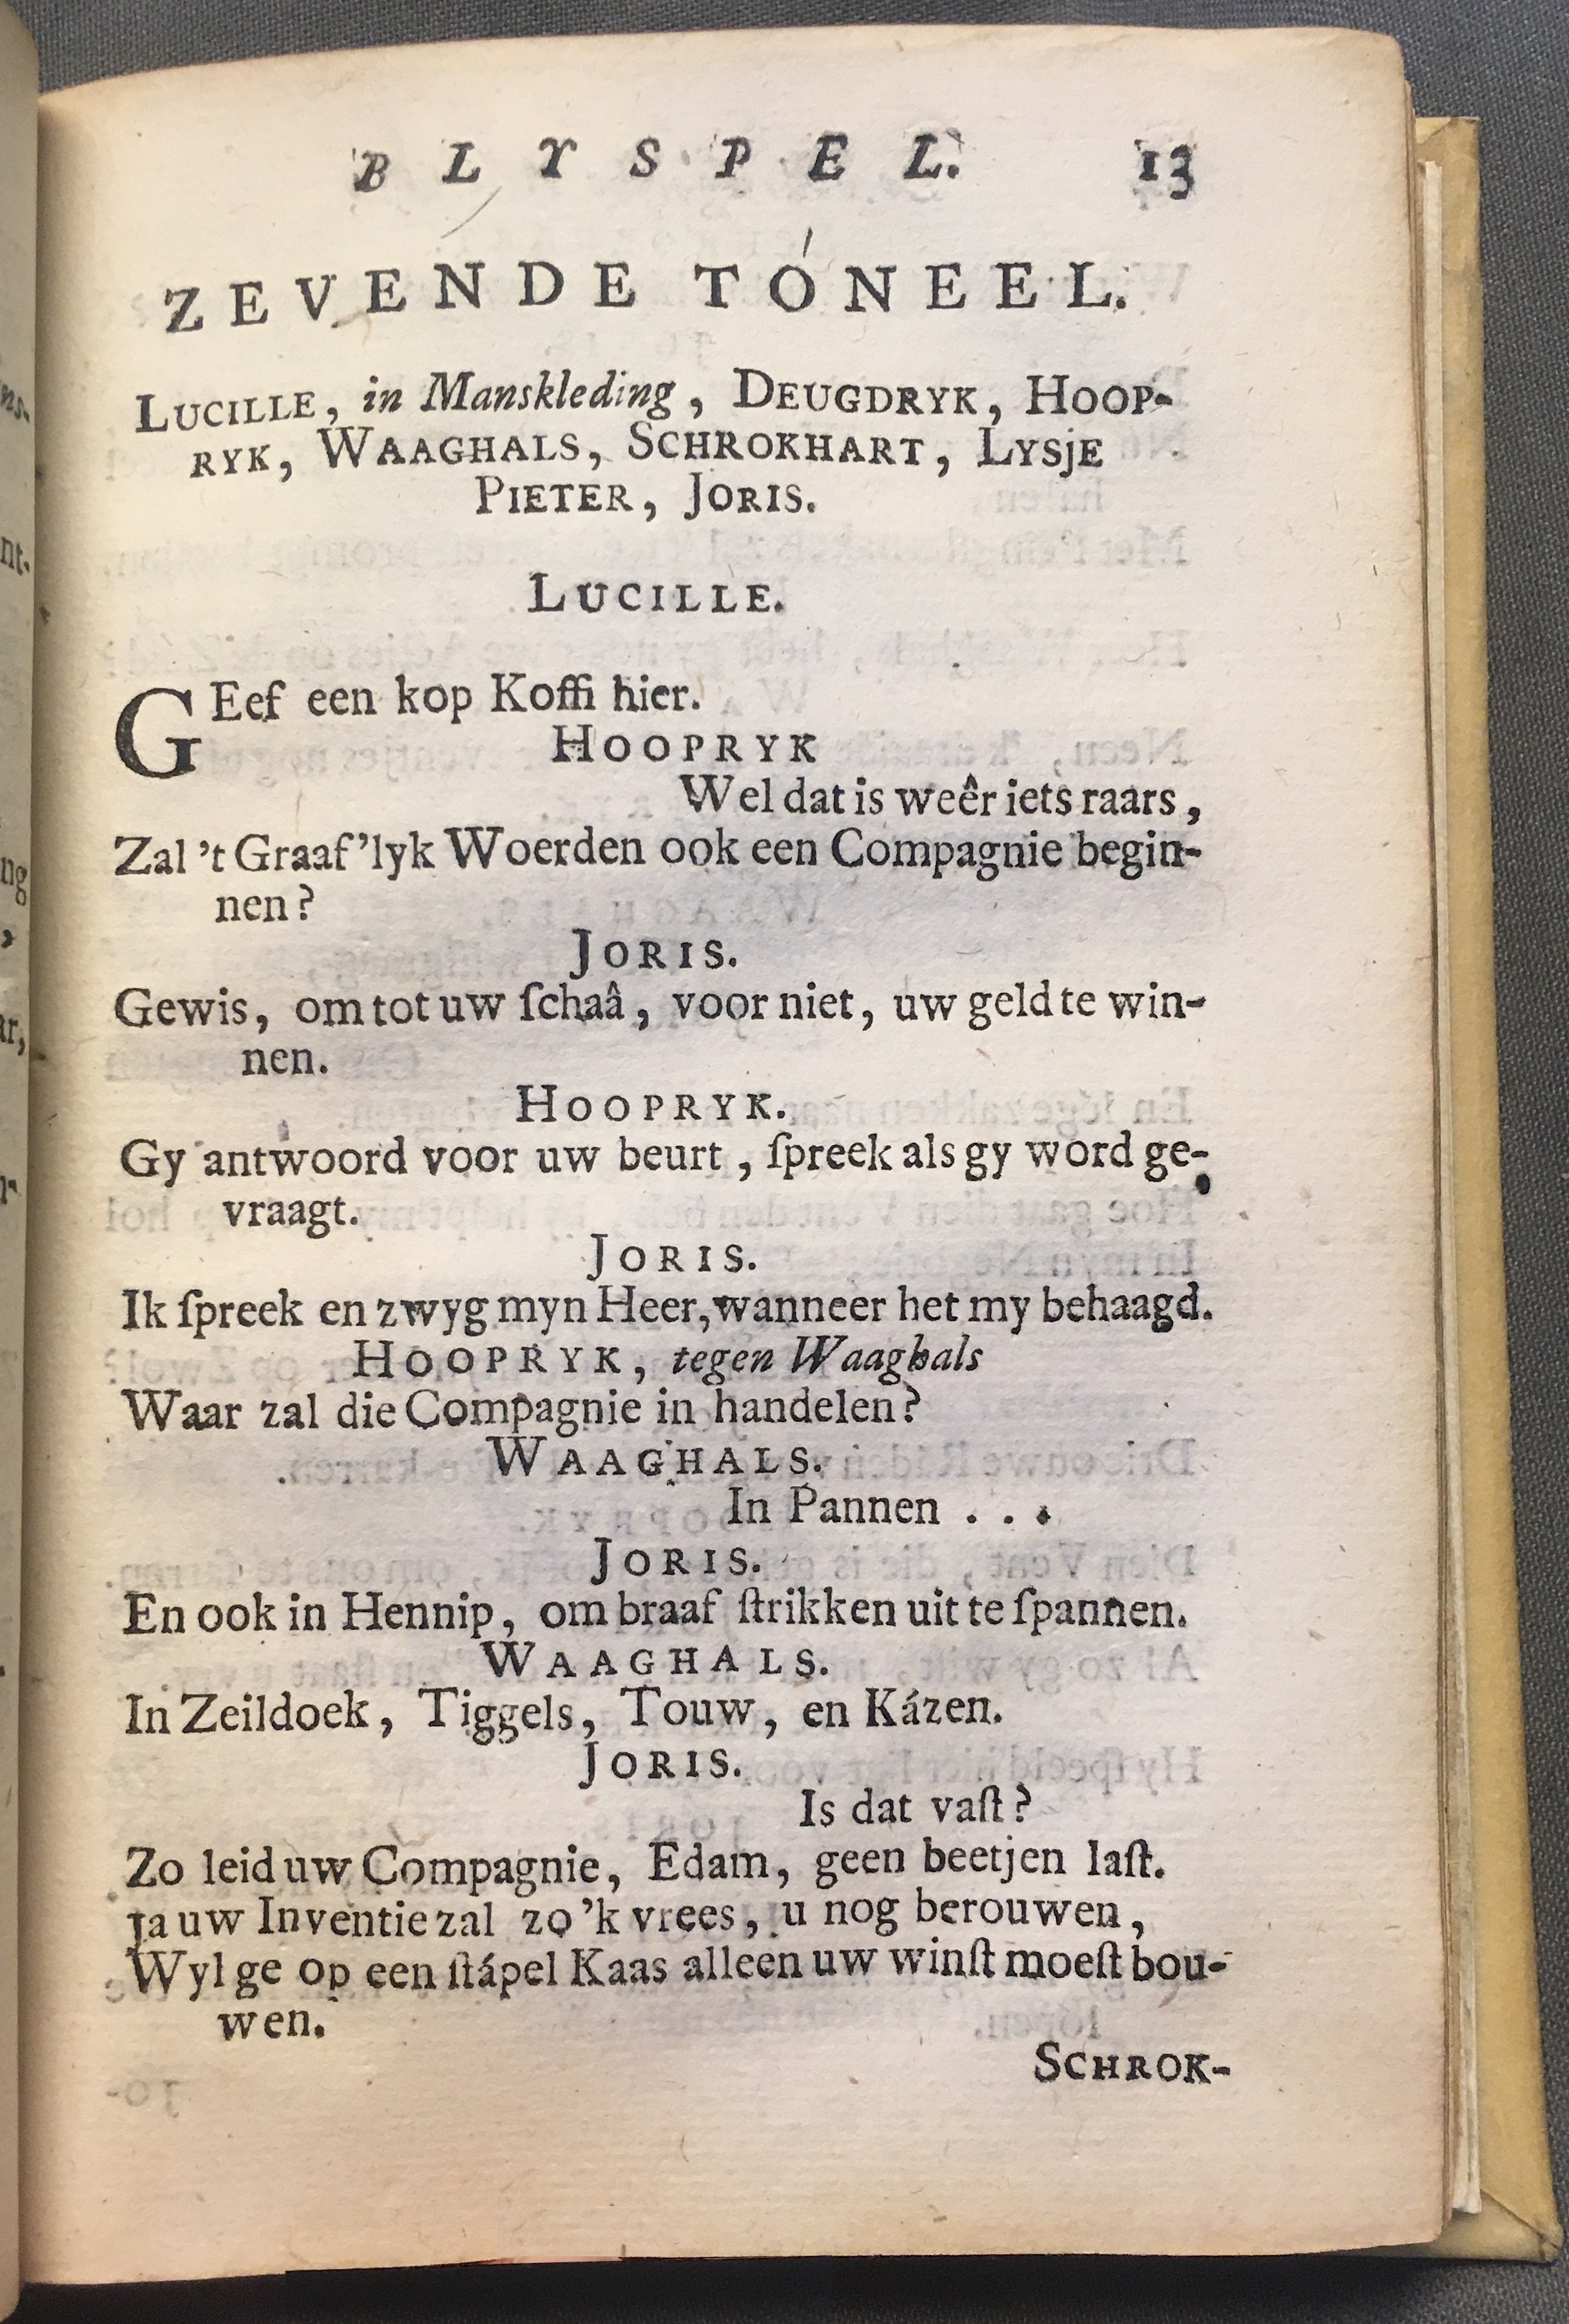 BLYSPEL. 13
ZEVENDE TÓNEEL.
LUCILLE, in Manskleding, DEUGDRYK, HOOP-
RYK, WAAGHALS, SCHROKHART, LYSjE
PIETER, JORIS.
LUCILLE.
GEef een kop Koffi hier.
HOOPRYK
Wel dat is weêr iets raars,
Zal 't Graaf'lyk Woerden ook een Compagnie begin-
nen?
JORIS.
Gewis, om tot uw ſchaâ, voor niet, uw geld te win-
nen.
HOOPRYK.
Gy antwoord voor uw beurt, ſpreek als gy word ge-
vraagt.
JORIS.
Ik ſpreek en zwyg myn Heer, wanneer het my behaagd.
HOOPRYK, tegen Waaghals
Waar zal die Compagnie in handelen?
WAAGHALS.
In Pannen . . .
JORIS.
En ook in Hennip, om braaf ſtrikken uit te ſpannen.
WAAGHALS.
In Zeildoek, Tiggels, Touw, en Kázen.
JORIS.
Is dat vaſt?
Zo leid uw Compagnie, Edam, geen beetjen laſt.
Ja uw Inventie zal zo 'k vrees, u nog berouwen,
Wyl ge op een ſtápel Kaas alleen uw winſt moeſt bou-
wen.
SCHROK-